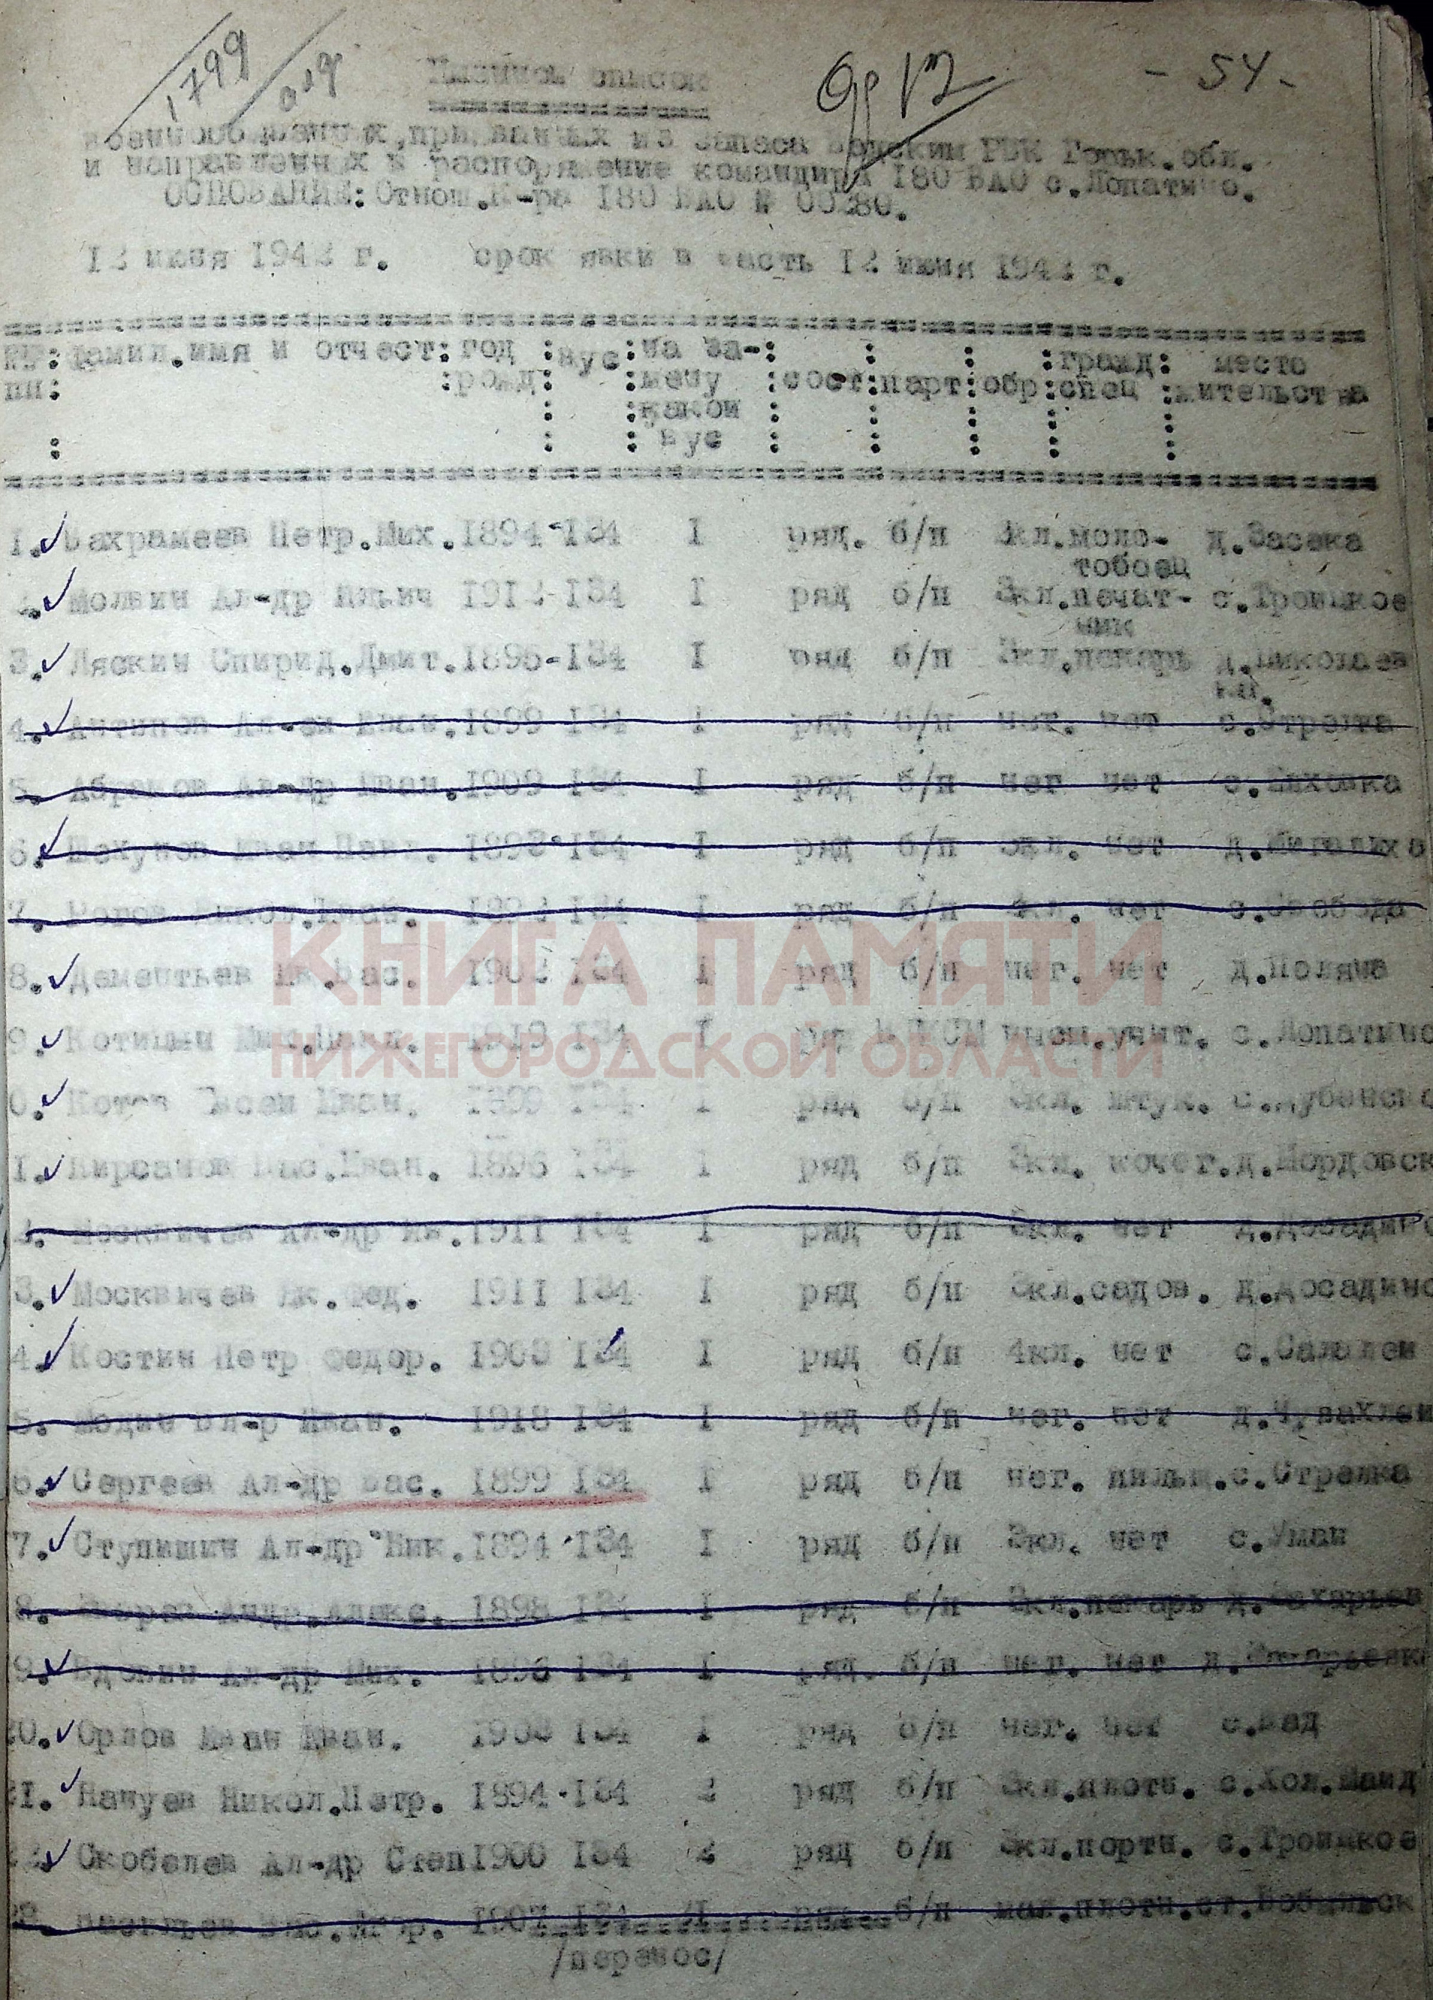 1799
019
- 54 -
Именной список
военнообязанных, призванных из запаса Вадским РВК Горьк. обл.
и направленных в распоряжение командира 180 ВАО с.Лопатино.
ОСНОВАНИЕ: Отнош.К-ра 180 ВАО № 00280.
12 июня 1942 г. срок явки в часть 12 июня 1942 г.
№№ : фамил.имя и отчест: год : вус : на за- : сост : парт : обр : гражд : место
пп : рожд : мену : спец : жительства
какой
вус
1. Вахрамеев Петр.Мих. 1894 134 1 ряд. б/п 3кл. моло- д.Засека
тобоец
2. Молвин Ал-др Ильич 1912 134 1 ряд б/п 3кл. печат- с.Троицкое
ник
3. Ляскин Спирид.Дмит. 1895 134 1 ряд б/п 3кл. пекарь д.Николаев
ка.
4. Антипов Иван. 1899 134 1 ряд б/п нег. нет с.Стрелка
5. Абрамов Ал-др Иван. 1909 134 1 ряд б/п нег нет с.
6. Иван Павл. 134 1 ряд б/п 3кл. нет д.
7. Иван. 134 1 ряд б/п 4кл. нет с.Слобода
8. Дементьев Ив.Вас. 1902 134 1 ряд б/п нег. нет д.Поляна
9. Котишин 134 1 ряд ВЛКСМ учит. с.Лопатино
0. Котов Иван. 1899 134 1 ряд б/п 3кл. штук. с.Дубенско
1. Кирсанов Вас.Иван. 1896 134 1 ряд б/п 3кл. кочег. д.Мордовск
2. Москвичев Ал-др Ив. 1911 134 1 ряд б/п 3кл. нет д.Досадино
3. Москвичев Ик.Фед. 1911 134 1 ряд б/п 3кл. садов. д.Досадино
4. Костин Петр Федор. 1903 134 1 ряд б/п 4кл. нет с.Салалеи
5. Иван. 1918 134 1 ряд б/п нег. нет д.Чувахлеи
6. Сергеев Ал-др Вас. 1899 134 1 ряд б/п нег. пильщ. с.Стрелка
7. Ступишин Ал-др Ник. 1894 134 1 ряд б/п 3кл. нет с.Умаи
8. Андр.Алекс. 1898 134 1 ряд б/п 3кл. пекарь д.Захарьев
9. Вдовин Ал-др Мих. 1896 134 1 ряд. б/п нег. нет д.
20. Орлов Иван Иван. 1903 134 1 ряд б/п нег. нет с.Вад
21. Нануев Никол.Петр. 1894 134 2 ряд б/п 3кл. плотн. с.Хол.Маид
22. Скобелев Ал-др Степ 1900 134 2 ряд б/п 3кл. портн. с.Троицкое
23. 1907 134 1 ряд б/п мал. плотн. ст.Бобыльск
/перенос/
КНИГА ПАМЯТИ
НИЖЕГОРОДСКОЙ ОБЛАСТИ